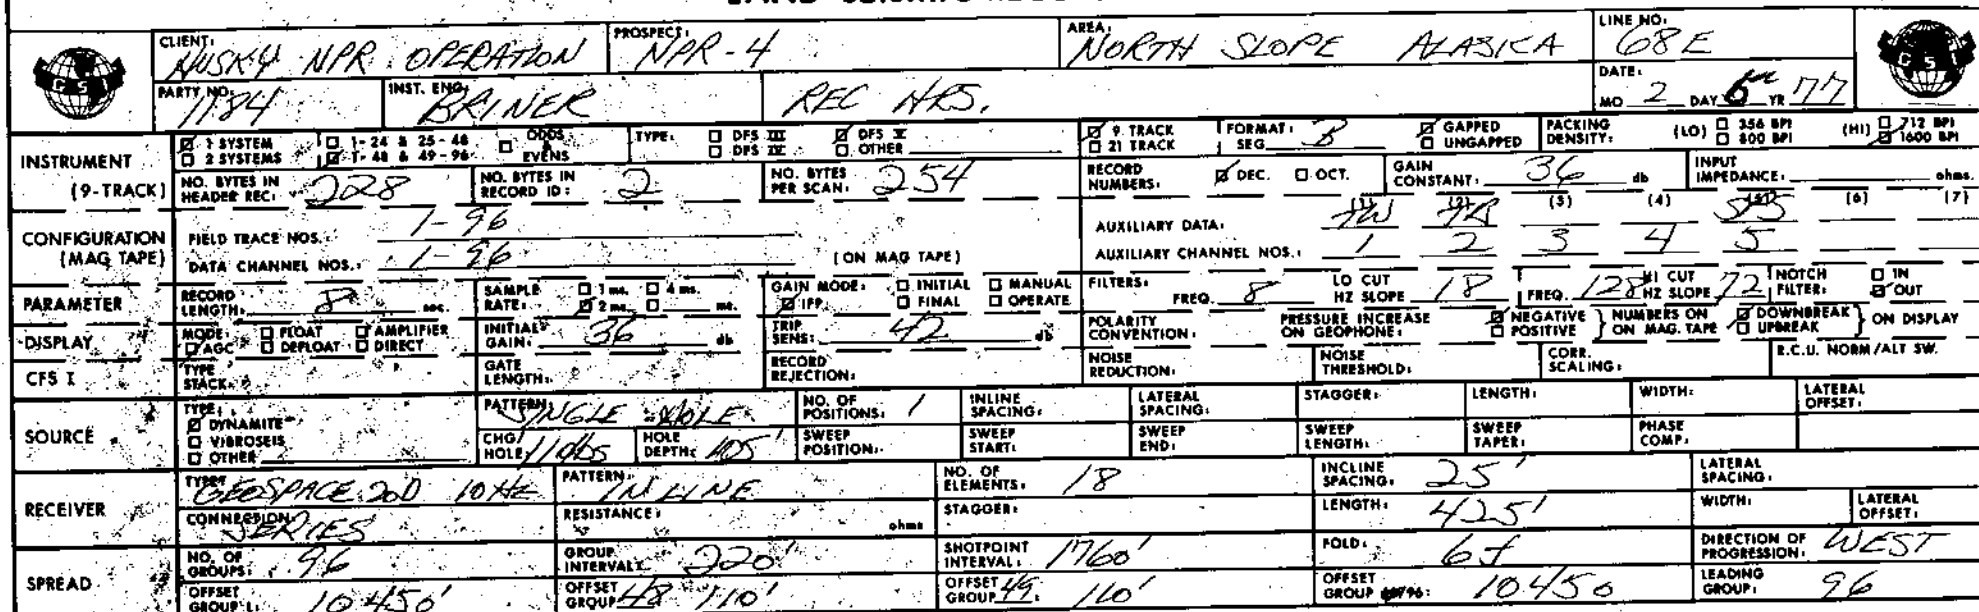 CLIENT: HUSKY NPR OPERATION PROSPECT: NPR-4 AREA: NORTH SLOPE ALASKA LINE NO: 68E
GSI
PARTY NO: 1184 INST. ENG: BRINER REC HRS. DATE: MO 2 DAY 6 YR 77
GSI
INSTRUMENT (9-TRACK)
☑ 1 SYSTEM ☐ 1-24 & 25-48 ☐ ODDS & EVENS TYPE: ☐ DFS III ☑ DFS V ☑ 9 TRACK FORMAT: SEG B ☑ GAPPED PACKING DENSITY: (LO) ☐ 356 BPI (HI) ☐ 712 BPI
☐ 2 SYSTEMS ☑ 1-48 & 49-96 ☐ DFS IV ☐ OTHER ☐ 21 TRACK ☐ UNGAPPED ☐ 800 BPI ☑ 1600 BPI
NO. BYTES IN HEADER REC: 228 NO. BYTES IN RECORD ID: 2 NO. BYTES PER SCAN: 254 RECORD NUMBERS: ☑ DEC. ☐ OCT. GAIN CONSTANT: 36 db INPUT IMPEDANCE: ohms.
CONFIGURATION (MAG TAPE)
(1) (2) (3) (4) (5) (6) (7)
FIELD TRACE NOS.: 1-96 AUXILIARY DATA: TW TB
DATA CHANNEL NOS.: 1-96 (ON MAG TAPE) AUXILIARY CHANNEL NOS.: 1 2 3 4 5
PARAMETER RECORD LENGTH: 8 sec. SAMPLE RATE: ☐ 1 ms. ☐ 4 ms. ☑ 2 ms. ☐ ms. GAIN MODE: ☐ INITIAL ☐ MANUAL ☑ IFP ☐ FINAL ☐ OPERATE FILTERS: FREQ. 8 LO CUT HZ SLOPE 18 FREQ. 128 HI CUT HZ SLOPE 72 NOTCH FILTER: ☐ IN ☑ OUT
DISPLAY MODE: ☐ FLOAT ☐ AMPLIFIER ☑ AGC ☐ DEFLOAT ☐ DIRECT INITIAL GAIN: 36 db TRIP SENS: 42 db POLARITY CONVENTION: PRESSURE INCREASE ON GEOPHONE: ☑ NEGATIVE ☐ POSITIVE } NUMBERS ON MAG. TAPE ☑ DOWNBREAK ☐ UPBREAK } ON DISPLAY
CFS I TYPE STACK: GATE LENGTH: RECORD REJECTION: NOISE REDUCTION: NOISE THRESHOLD: CORR. SCALING: R.C.U. NORM/ALT SW.
SOURCE TYPE: ☑ DYNAMITE ☐ VIBROSEIS ☐ OTHER
PATTERN: SINGLE HOLE NO. OF POSITIONS: 1 INLINE SPACING: LATERAL SPACING: STAGGER: LENGTH: WIDTH: LATERAL OFFSET:
CHG/HOLE: HOLE DEPTH: 105' SWEEP POSITION: SWEEP START: SWEEP END: SWEEP LENGTH: SWEEP TAPER: PHASE COMP:
RECEIVER TYPE: GEOSPACE 20D 10HZ PATTERN: IN LINE NO. OF ELEMENTS: 18 INCLINE SPACING: 25' LATERAL SPACING:
CONNECTION: SERIES RESISTANCE: ohms STAGGER: LENGTH: 425' WIDTH: LATERAL OFFSET:
SPREAD NO. OF GROUPS: 96 GROUP INTERVAL: 220' SHOTPOINT INTERVAL: 1760' FOLD: 6f DIRECTION OF PROGRESSION: WEST
OFFSET GROUP 1: 10450' OFFSET GROUP 48 110' OFFSET GROUP 49: 110' OFFSET GROUP 96: 10450 LEADING GROUP: 96